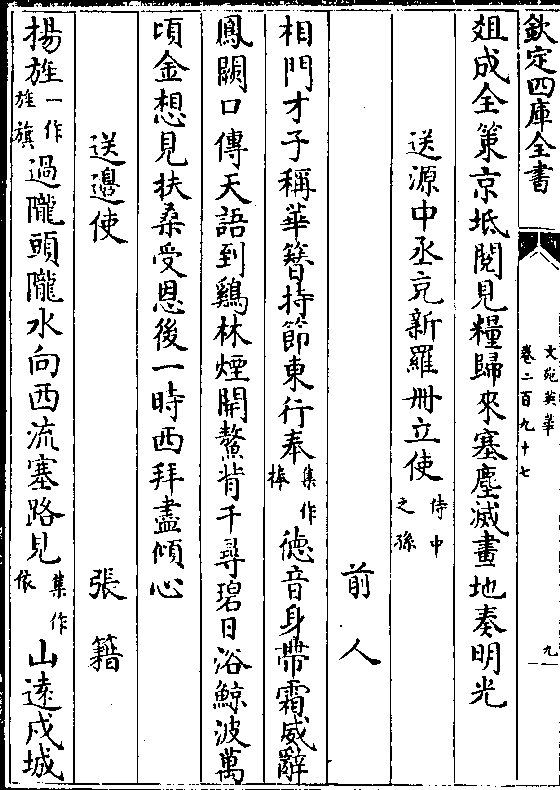 欽定四庫全書
文苑英華
卷二百九十七
九
俎成全策京坻閱見糧歸來塞塵滅畫地奏明光
送源中丞充新羅册立使侍中之孫
前人
相門才子稱華簪持節東行奉集作捧德音身帶霜威辭
鳳闕口傳天語到鷄林煙開鰲背千尋碧日浴鯨波萬
頃金想見扶桑受恩後一時西拜盡傾心
送邊使
張籍
揚旌一作旌旗過隴頭隴水向西流塞路見集作依山遠戍城